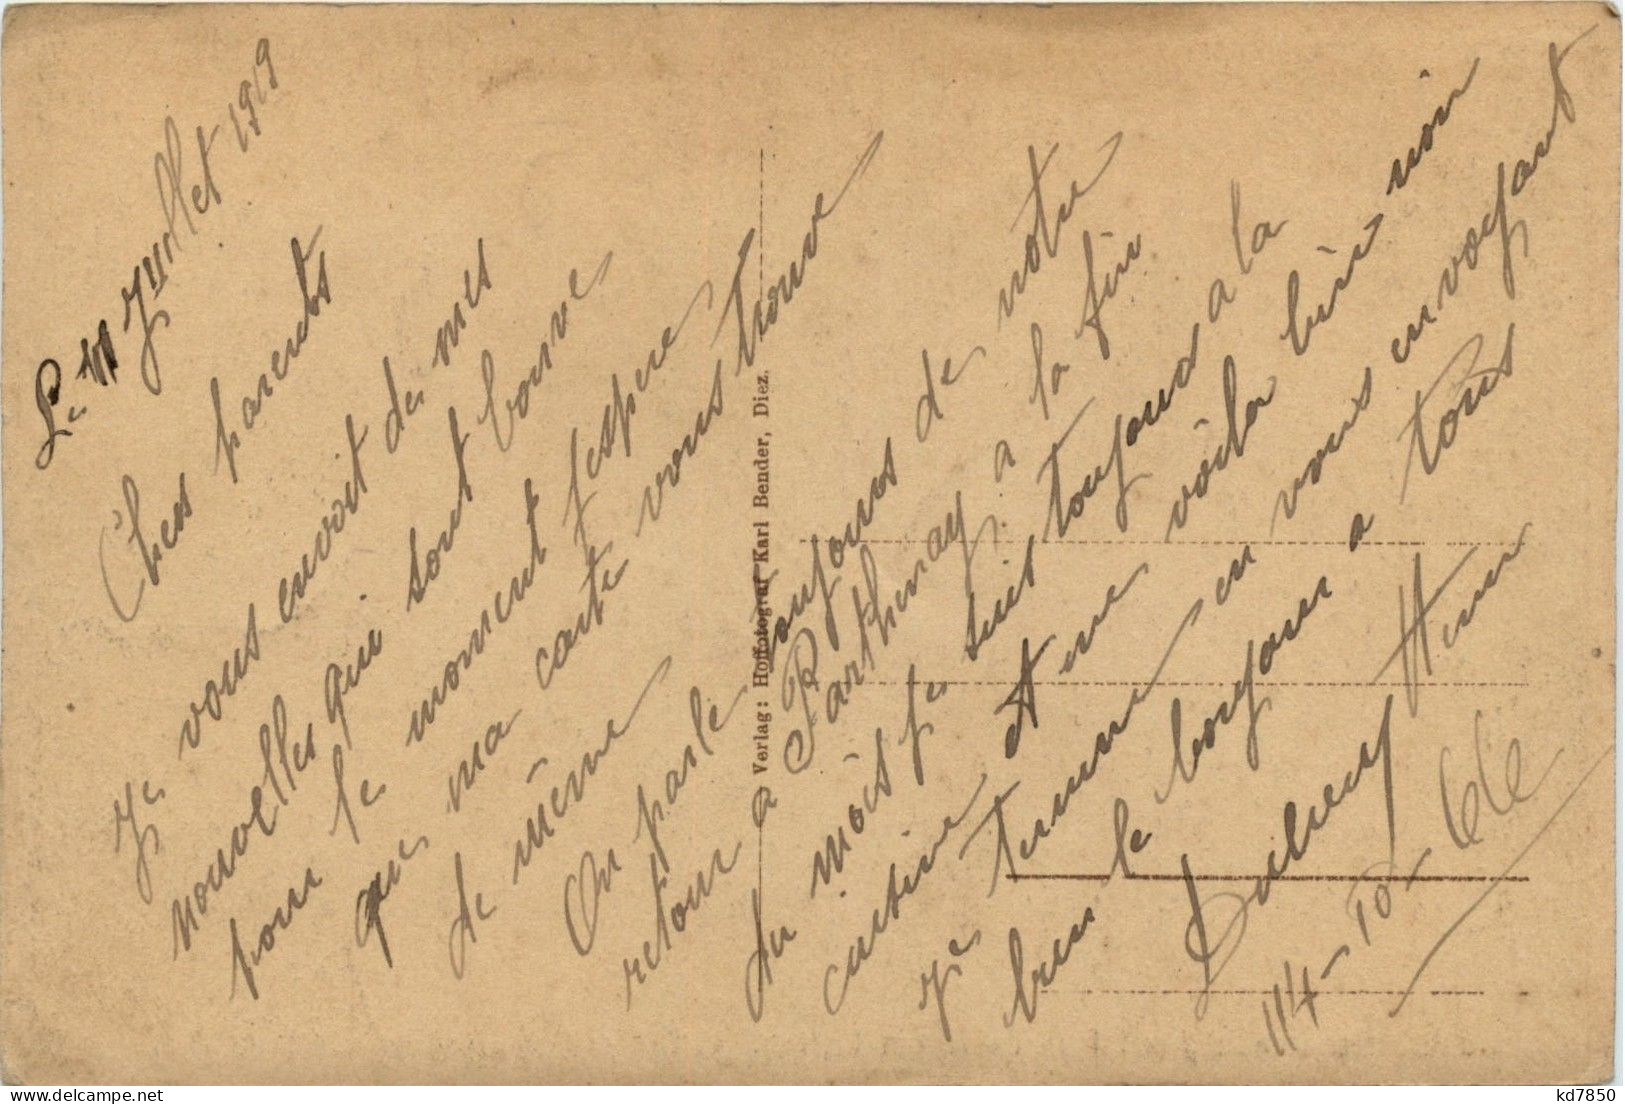 Le Juillet 1919
Chers parents
Je vous envoit de mes
nouvelles qui sont bonne
pour le moment j'espere
que ma carte vous trouve
de même
On parle toujours de notre
retour a Parthenay, a la fin
du mois je suis toujours a la
cuisine et me voila bien noir
Je termine en vous envoyant
bien le bonjour a tous
Henri
114-10-6
Verlag: Hoffotograf Karl Bender, Diez.
kd7850